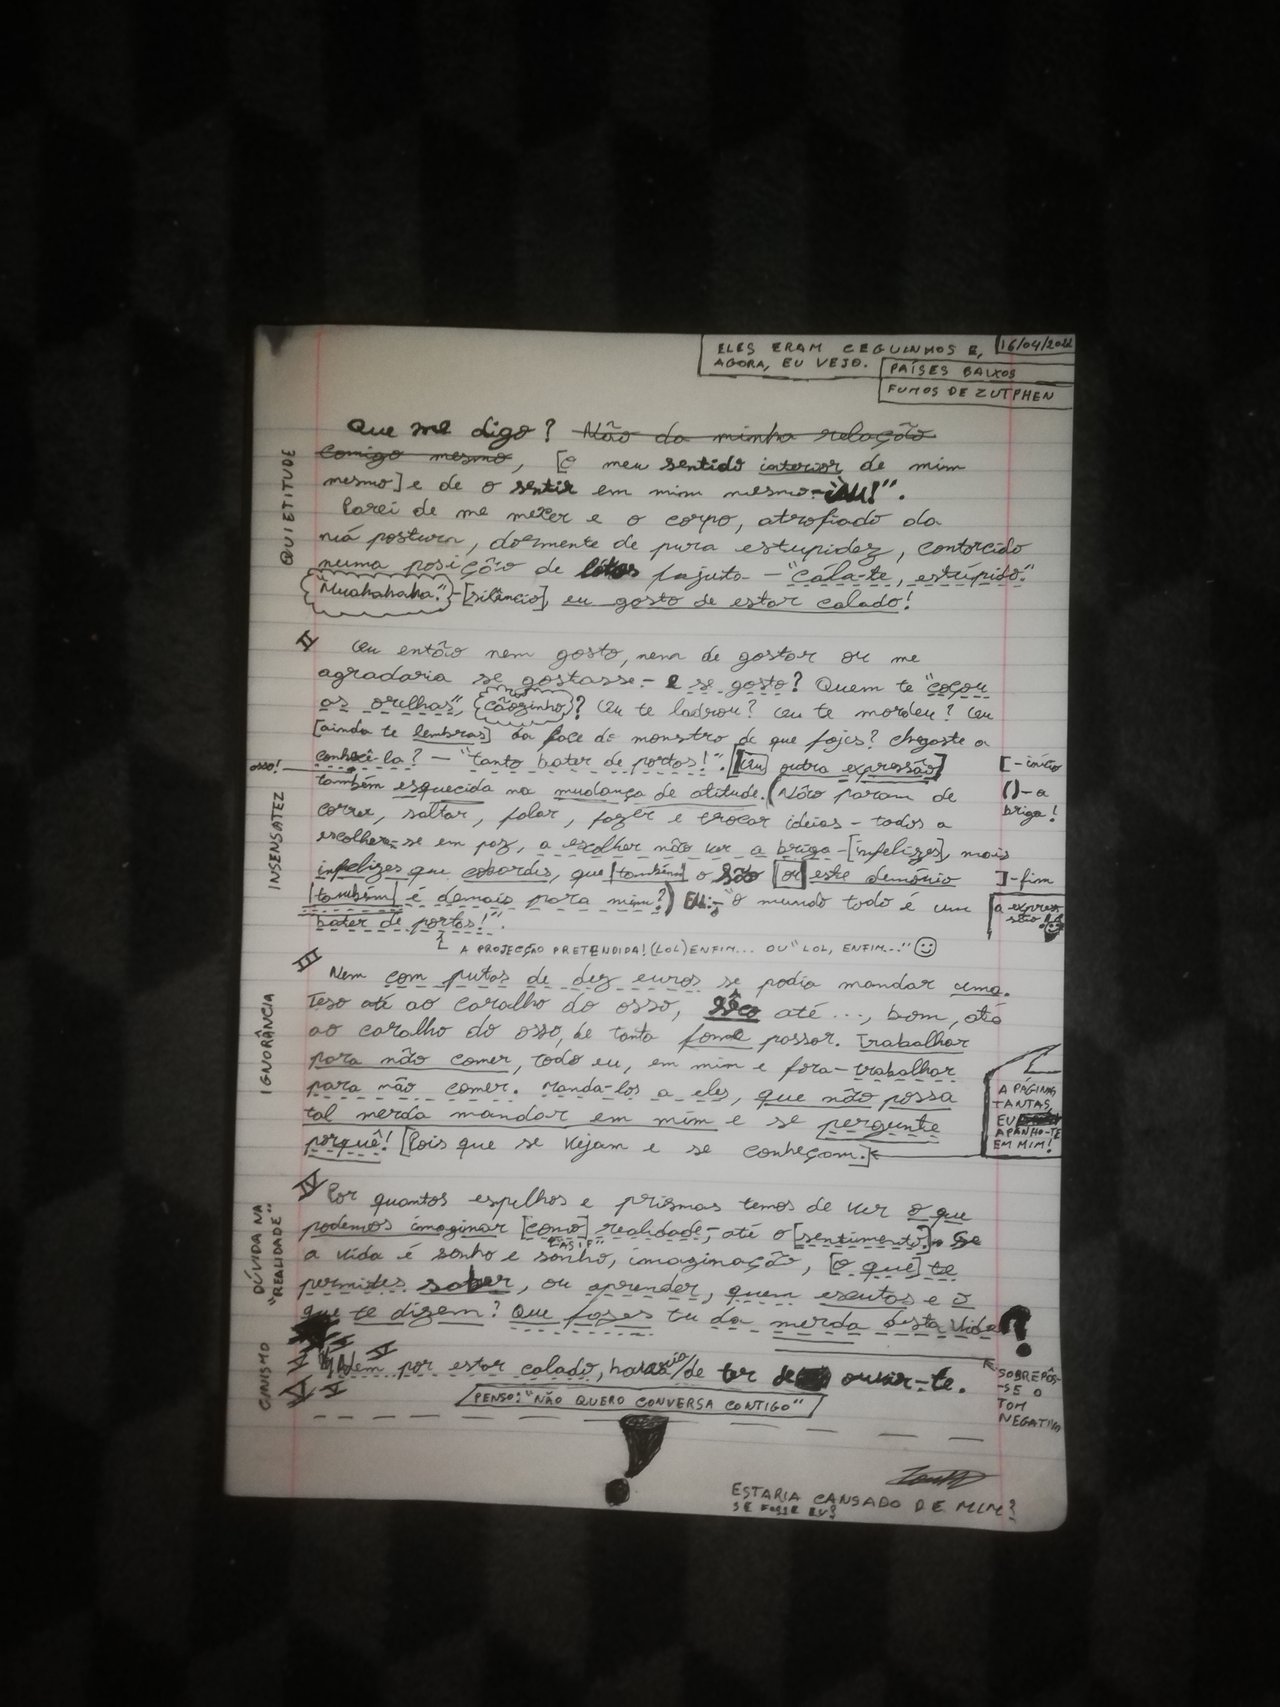 ELES ERAM CEGUINHOS E,
AGORA, EU VEJO.
16/04/2022
PAÍSES BAIXOS
FUMOS DE ZUTPHEN
QUIETITUDE
Que me digo? Não da minha relação
comigo mesmo, [o meu sentido interior de mim
mesmo] e de o sentir em mim mesmo
Parei de me mexer e o corpo, atrofiado da
má postura, dormente de pura estupidez, contorcido
numa posição de fajuta - "cála-te, estúpido."
"Muahahaha." - [silêncio], eu gosto de estar calado!
II
Eu então nem gosto, nem de gostar ou me
agradaria se gostasse - e se gosto? Quem te "coçou
as orelhas", cãozinho? Eu te ladrou? Eu te mordeu? Eu
[ainda te lembras] da face de monstro de que fojes? Chegaste a
conhecê-la? - "tanto bater de portas!". [Eu outra expressão]
osso!
também esquecida na mudança de atitude. (Não param de
correr, saltar, falar, fazer e trocar ideias - todos a
escolher-se em paz, a escolher não ver a briga - [infelizes], mais
infelizes que cobardes, que [também] o são [ou este demónio
[também] é demais para mim?) EU:- "o mundo todo é um
bater de portas!".
INSENSATEZ
[ - início
() - a
briga!
] - fim
[a expres
são
A PROJECÇÃO PRETENDIDA! (LOL) ENFIM... OU "LOL, ENFIM..."
III
IGNORÂNCIA
Nem com putas de dez euros se podia mandar uma.
Teso até ao caralho do osso, sêco até ..., bom, até
ao caralho do osso, de tanta fome passar. Trabalhar
para não comer, todo eu, em mim e fora - trabalhar
para não comer. Manda-los a eles, que não possa
tal merda mandar em mim e se pergunte
porquê! [Pois que se vejam e se conheçam.]
A PÁGINAS
TANTAS,
EU
APANHO-TE
EM MIM!
IV
DÚVIDA NA
"REALIDADE"
Por quantos espelhos e prismas temos de ver o que
podemos imaginar [como] realidade; até o [sentimento]. Se
"AS IF"
a vida é sonho e sonho, imaginação, [o que] te
permites saber, ou aprender, quem escutas e o
que te dizem? Que fazes tu da merda desta vida?
V
CINISMO
VI
Nem por estar calado, havia/de ter de ouvir-te.
SOBREPÔS-
-SE O
TOM
NEGATIVO
PENSO: "NÃO QUERO CONVERSA CONTIGO"
ESTARIA CANSADO DE MIM?
SE FOSSE EU?